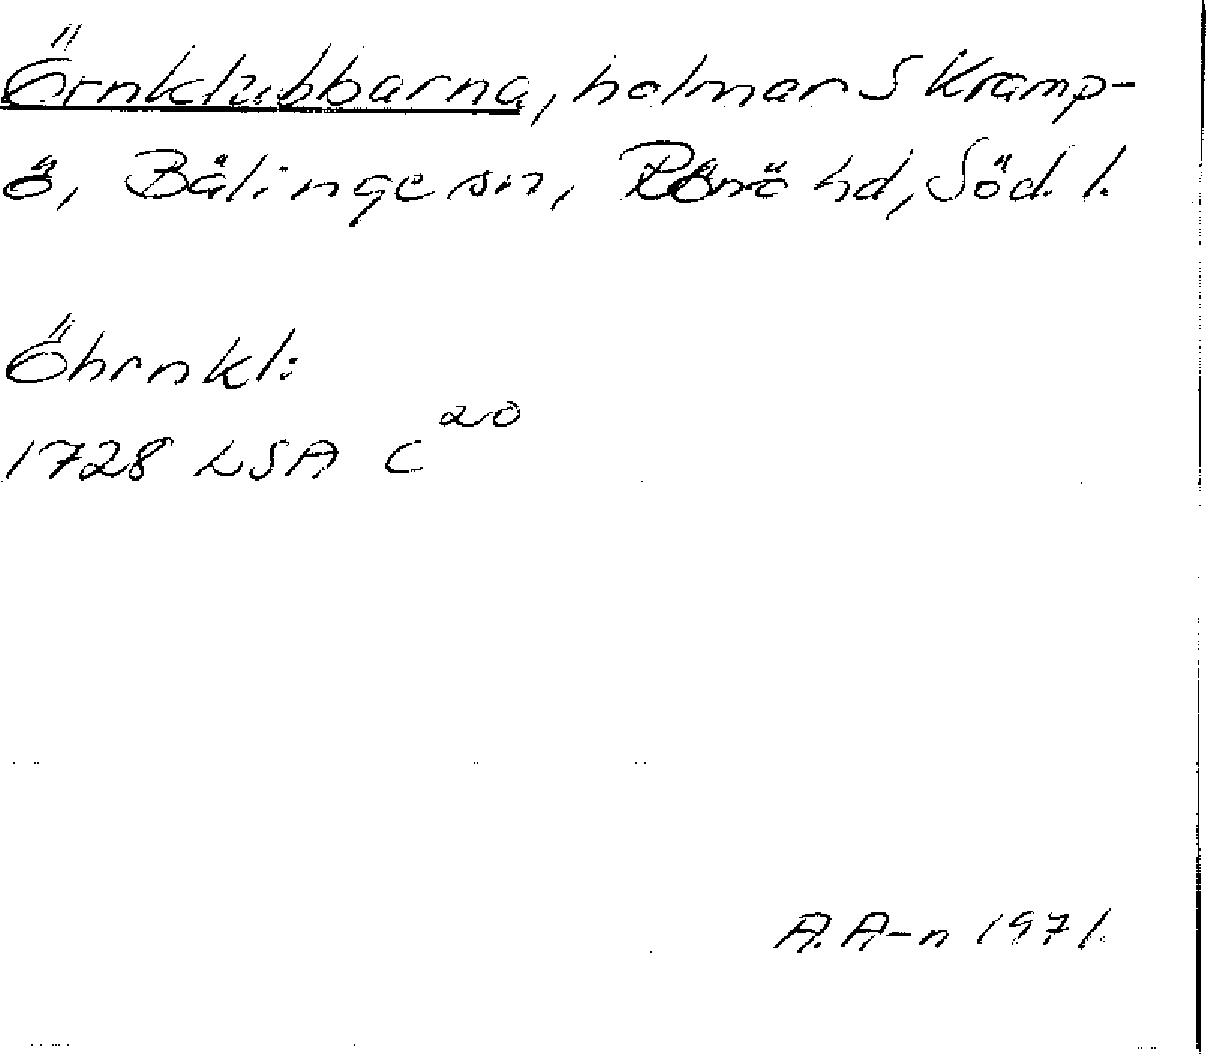 Örnklubbarna, holmar S Kramp-
ö, Bälinge sn, Rönö hd, Söd. l.
Öhrnkl:
1728 LSA C 20
A. A-n 1971.